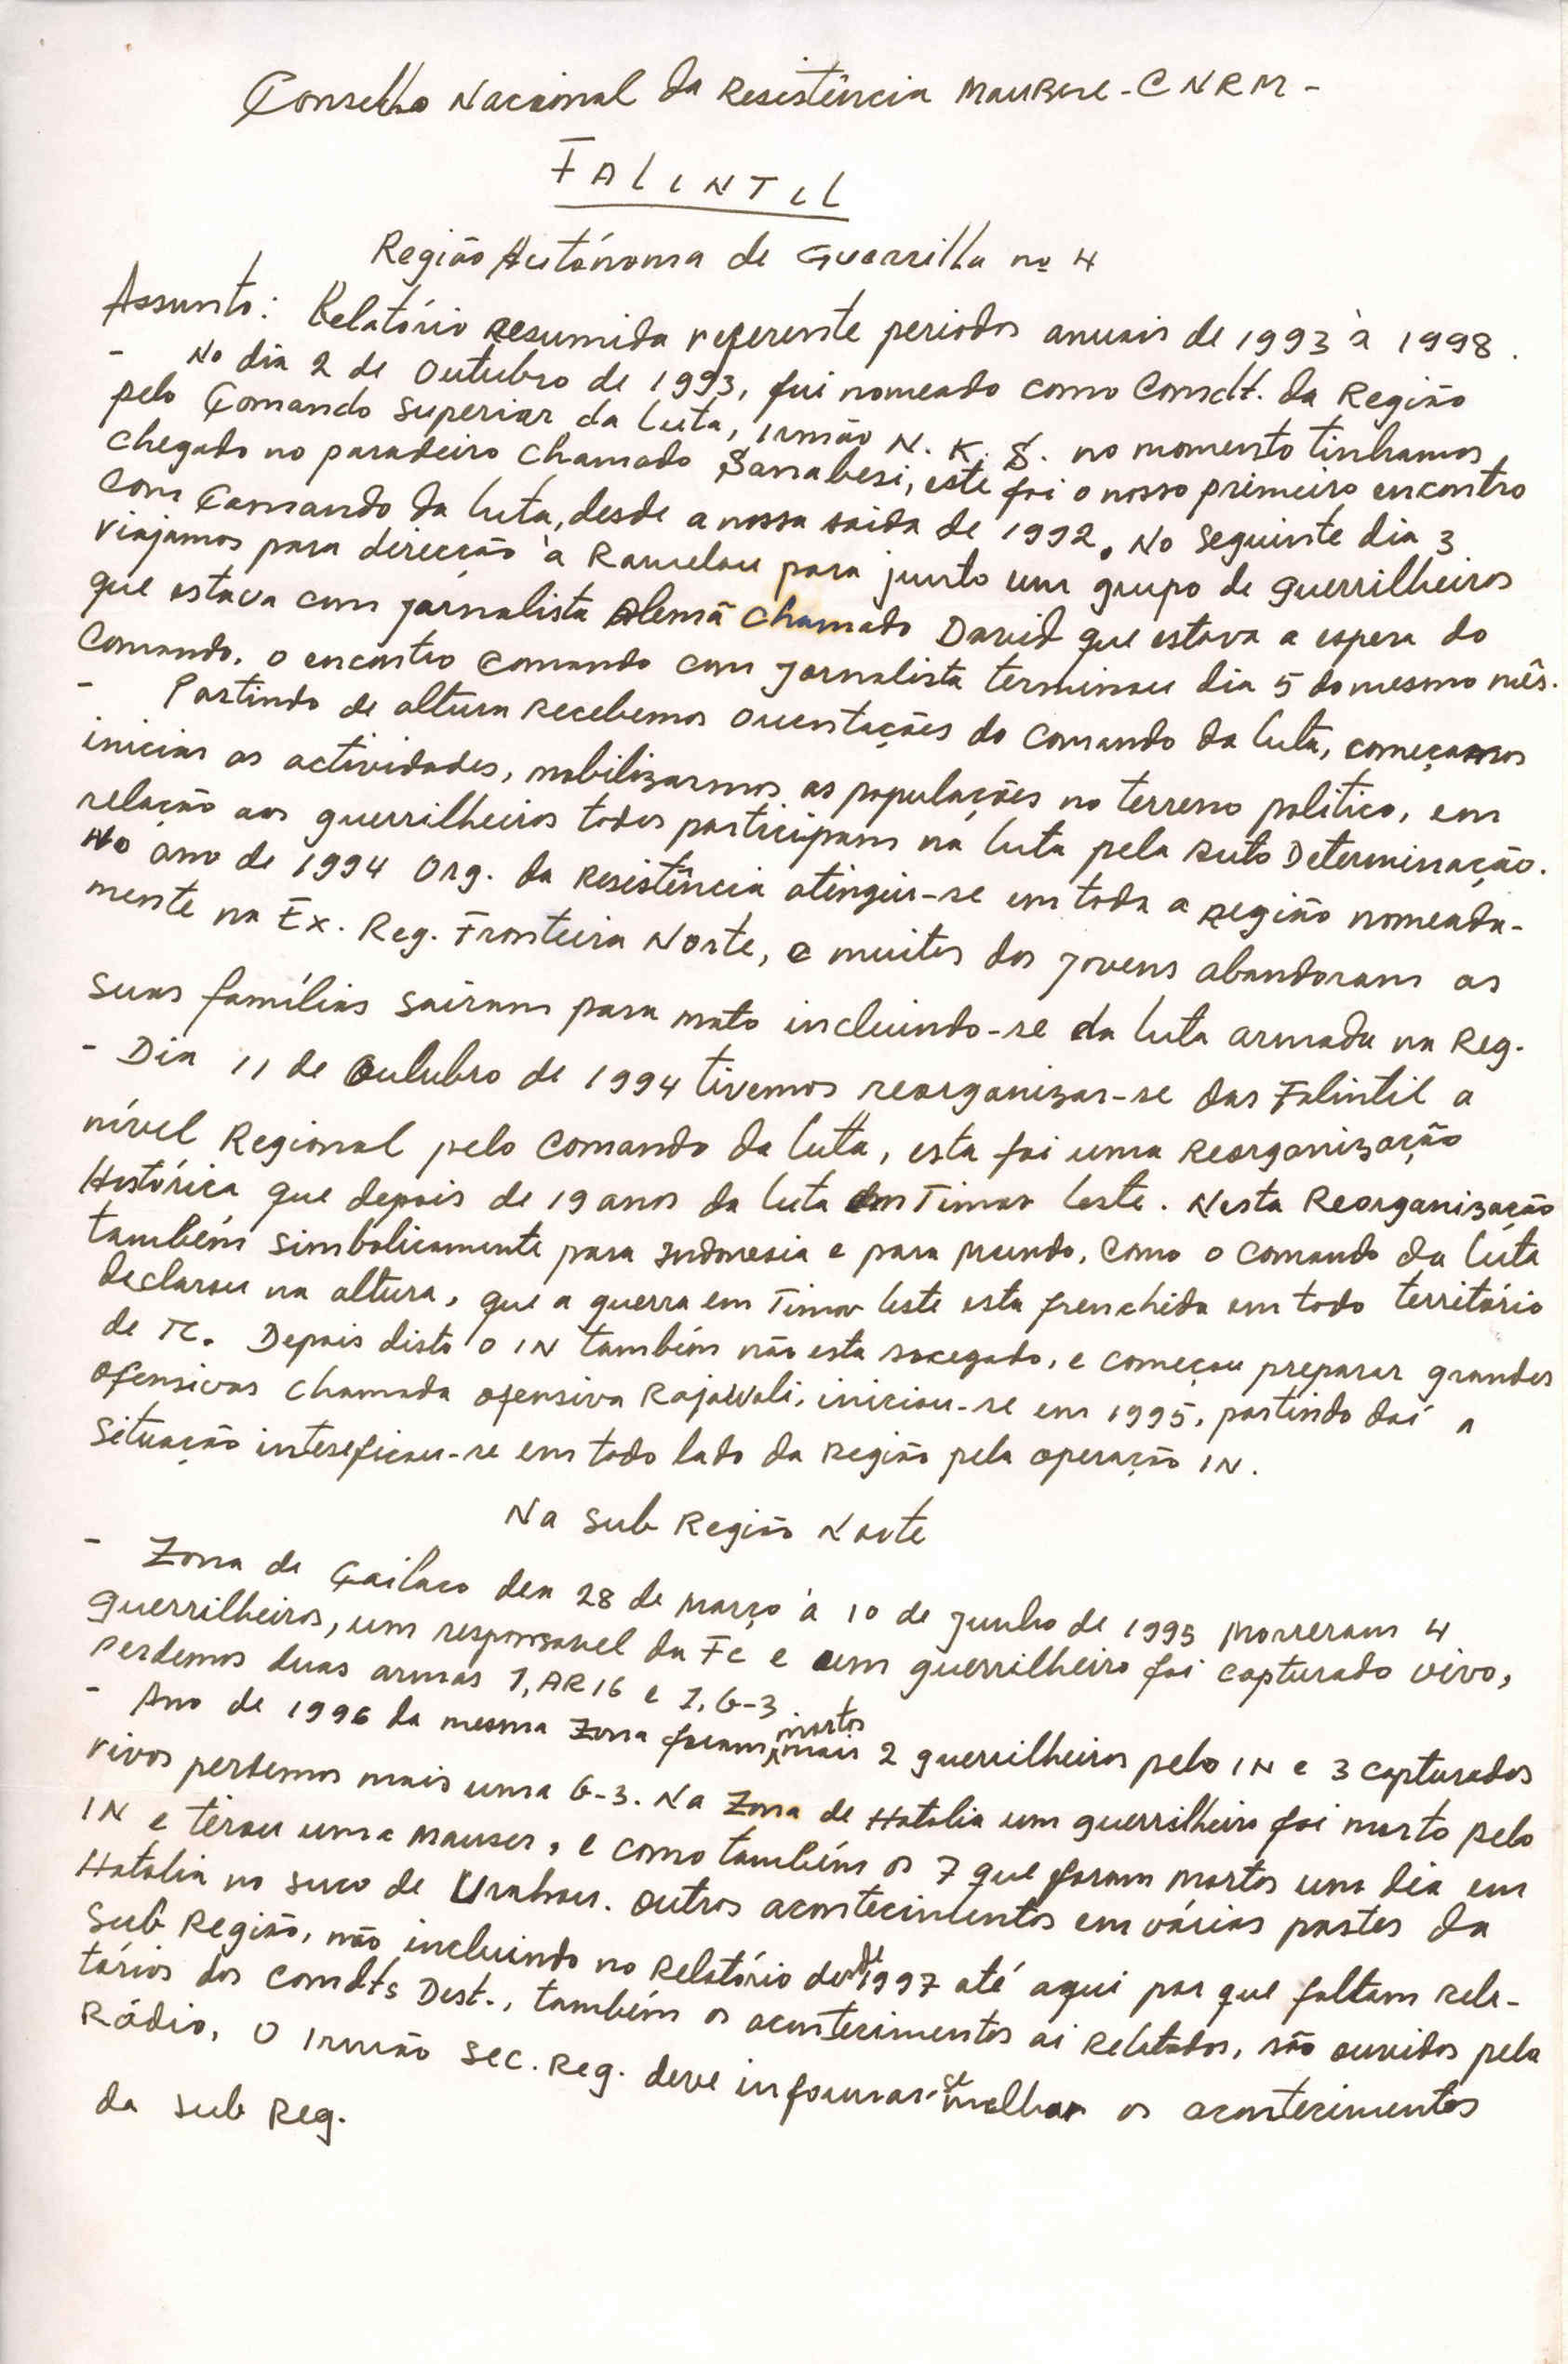 Conselho Nacional da Resistência Maubere - CNRM -
FALINTIL
Região Autónoma de Guerrilha nº 4
Assunto: Relatório Resumida referente periodos anuais de 1993 à 1998.
- No dia 2 de Outubro de 1993, fui nomeado como Comdt. da Região
pelo Comando Superior da luta, irmão N. K. S. no momento tinhamos
chegado no paradeiro chamado Sarabesi, este foi o nosso primeiro encontro
com Comando da luta, desde a nossa saida de 1992. No seguinte dia 3
viajamos para direcção à Ramelau para junto um grupo de guerrilheiros
que estava com jornalista Alemã chamado David que estava a espera do
Comando. O encontro comando com jornalista terminou dia 5 do mesmo mês.
- Partindo de altura recebemos orientações do comando da luta, começamos
iniciar as actividades, mobilizarmos as populações no terreno politico, em
relação aos guerrilheiros todos participam na luta pela auto Determinação.
No ano de 1994 Org. da Resistência atingiu-se em toda a Região nomeada-
mente na Ex. Reg. Fronteira Norte, e muitos dos jovens abandoram as
suas famílias sairam para mato incluindo-se da luta armada na Reg.
- Dia 11 de Outubro de 1994 tivemos reorganizar-se das Falintil a
nível Regional pelo Comando da luta, esta foi uma Reorganização
Histórica que depois de 19 anos da luta em Timor Leste. Nesta Reorganização
também simbolicamente para Indonesia e para mundo, como o comando da luta
declarou na altura, que a guerra em Timor Leste esta frenchida em todo território
de TL. Depois disto o IN também não esta socegado, e começou preparar grandes
ofensivas chamada ofensiva Rajawali, iniciou-se em 1995, partindo daí a
Situação inteseficou-se em todo lado da Região pela operação IN.
Na Sub Região Norte
- Zona de Cailaco dea 28 de março à 10 de junho de 1995 morreram 4
guerrilheiros, um responsavel da Fc e um guerrilheiro foi capturado vivo,
perdemos duas armas 1, AR16 e 1, G-3
- Ano de 1996 da mesma Zona foram mortos mais 2 guerrilheiros pelo IN e 3 capturados
vivos perdemos mais uma G-3. Na Zona de Hatolia um guerrilheiro foi morto pelo
IN e tirou uma mauser, e como também os 7 que foram mortos um dia em
Hatolia no suco de Urahou. Outros acontecimentos em várias partes da
Sub Região, não incluindo no Relatório de 1997 até aqui por que faltam rela-
tórios dos comdts Dest., também os acontecimentos ai Relatados, são ouvidos pela
Rádio, O Irmão Sec. Reg. deve informar-se melhor os acontecimentos
da Sub Reg.